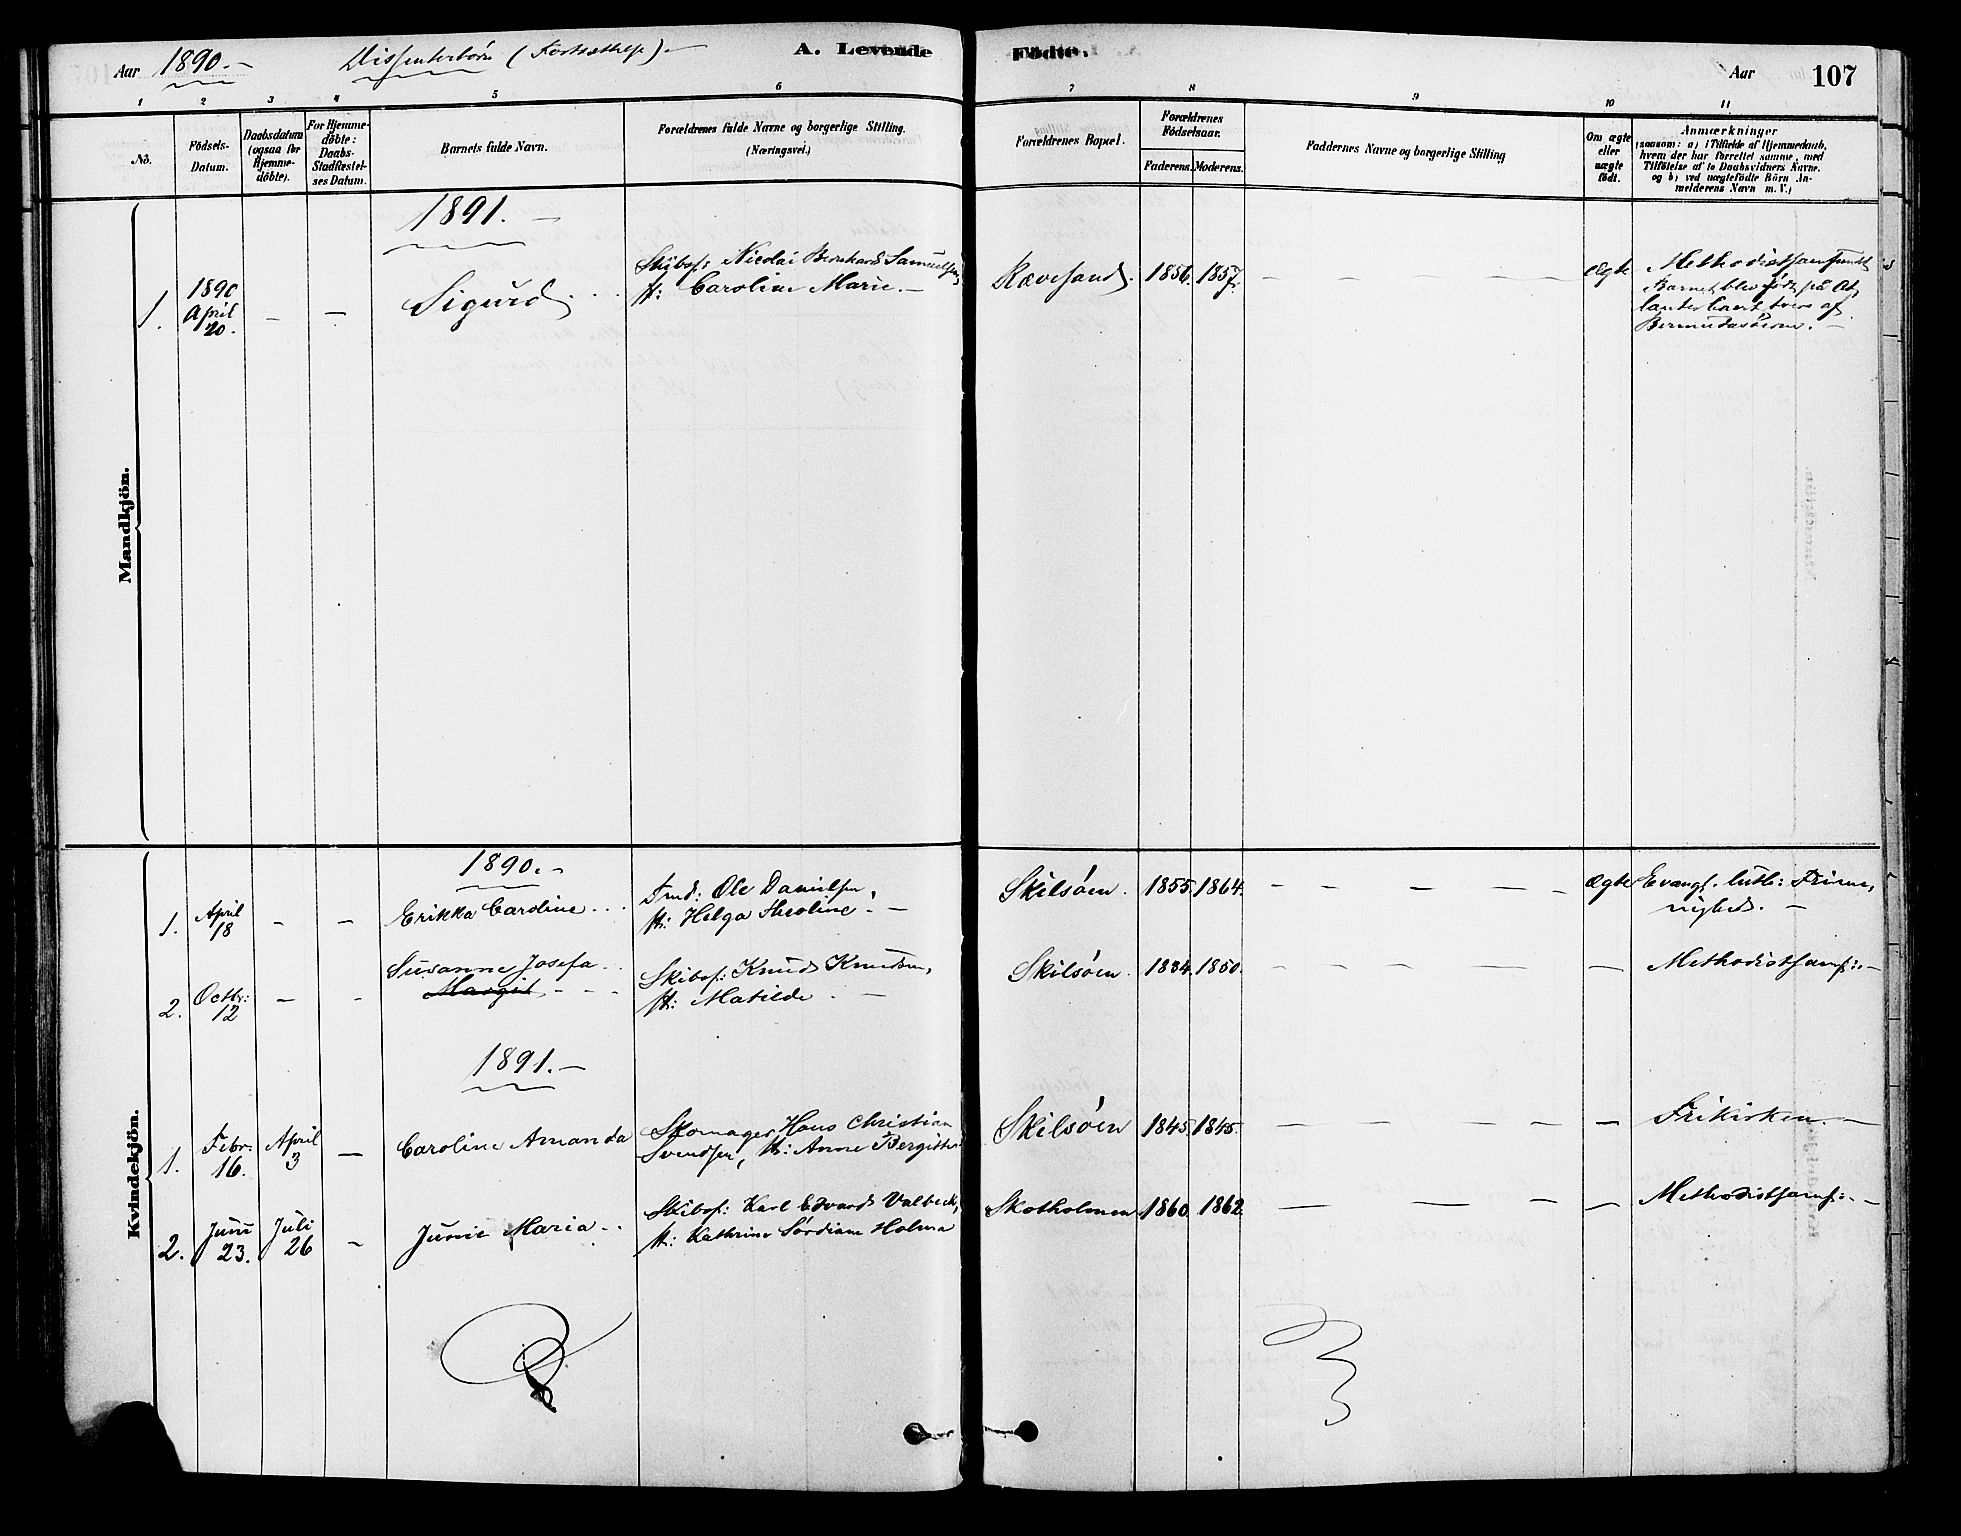 Aar 1890. — Dissenterbörn (Fortsættelse). — A. Levende Födte. Aar 107
1 2 3 4 5 6 7 8 9 10 11
No.
Födsels-
Datum.
Daabsdatum
(ogsaa for
Hjemme-
döbte).
For Hjemme-
döbte:
Daabs-
Stadfæstel-
ses Datum.
Barnets fulde Navn.
Forældrenes fulde Navne og borgerlige Stilling.
(Næringsvei.)
Forældrenes Bopæl.
Forældrenes
Födselsaar.
Faderens. Moderens.
Faddernes Navne og borgerlige Stilling
Om ægte
eller
uægte
födt.
Anmærkninger
(saasom: a) i Tilfælde af Hjemmedaab,
hvem der har forrettet samme, med
Tilföielse af to Daabsvidners Navne.
og b) ved uægtefödte Börn An-
melderens Navn m. V.)
Mandkjön.
1891. —
1. 1890
April
20. — — Sigurd
Skibsf: Nicolai Bernhard Samuelsen,
H: Caroline Marie. —
Rævesand. 1856. 1857. — — — — — ægte
Methodistsamfundet
Barnet blev født på At,
lanterhavet tvers af
Bermudasöerne. —
Kvindekjön.
1890. —
1. April
18 — — Erikka Caroline
Smd: Ole Danielsen,
H: Helga Theoline. —
Skilsöen. 1855. 1864. — — — — — ægte
Evangl. luth: Frime,
nighed. —
2. Octbr:
12 — — Susanne Josefa
Margit
Skibsf: Knud Knudsen,
H: Matilde —
Skilsöen. 1834. 1850. — — — — — — Methodistsamf: —
1891. —
1. Febr.
16. April
3 — Caroline Amanda
Skomager Hans Christian
Svendsen, H: Anne Bergitte
Skilsöen 1845. 1845. — — — — — — Frikirken. —
2. Juni
23. Juli
26 — Junie Maria
Skibsf: Karl Edvard Valbeck,
H: Kathrine Sördiane Holma
Skotholmen 1860. 1862. — — — — Methodistsamf: —